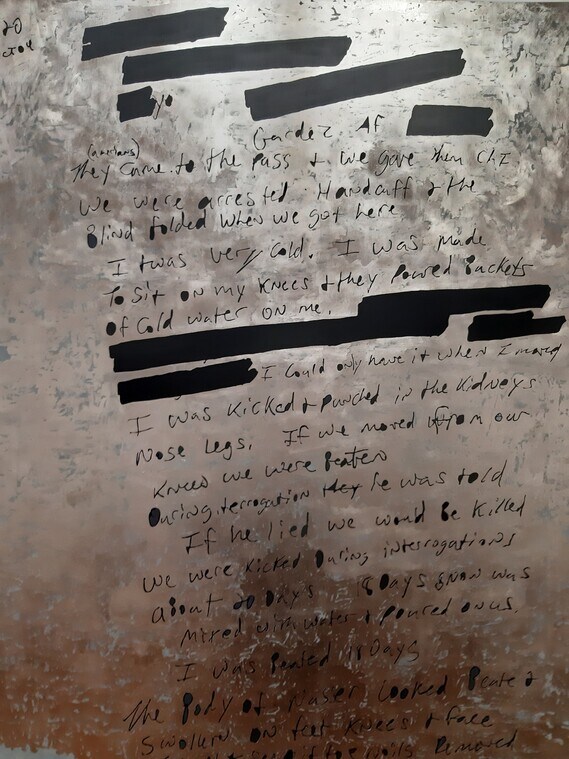 20
OCT 04
yo
Gardez AF
(Americans)
They came to the pass + we gave them chI
we were arrested. Handcuff & the
Blind folded when we got here
I twas very cold. I was made
To sit on my knees + they poured Buckets
of cold water on me.
I could only have it when I moved
I was kicked + punched in the kidneys
Nose legs. If we moved from our
knees we were Beaten
During interrogation they he was told
If he lied we would be killed
we were kicked During interrogations
about 20 Days 18 Days snow was
mixed with water + poured on us.
I was Beated 18 Days
The Body of Naser Looked Beate &
Swollen on feet knees + face
nails Removed